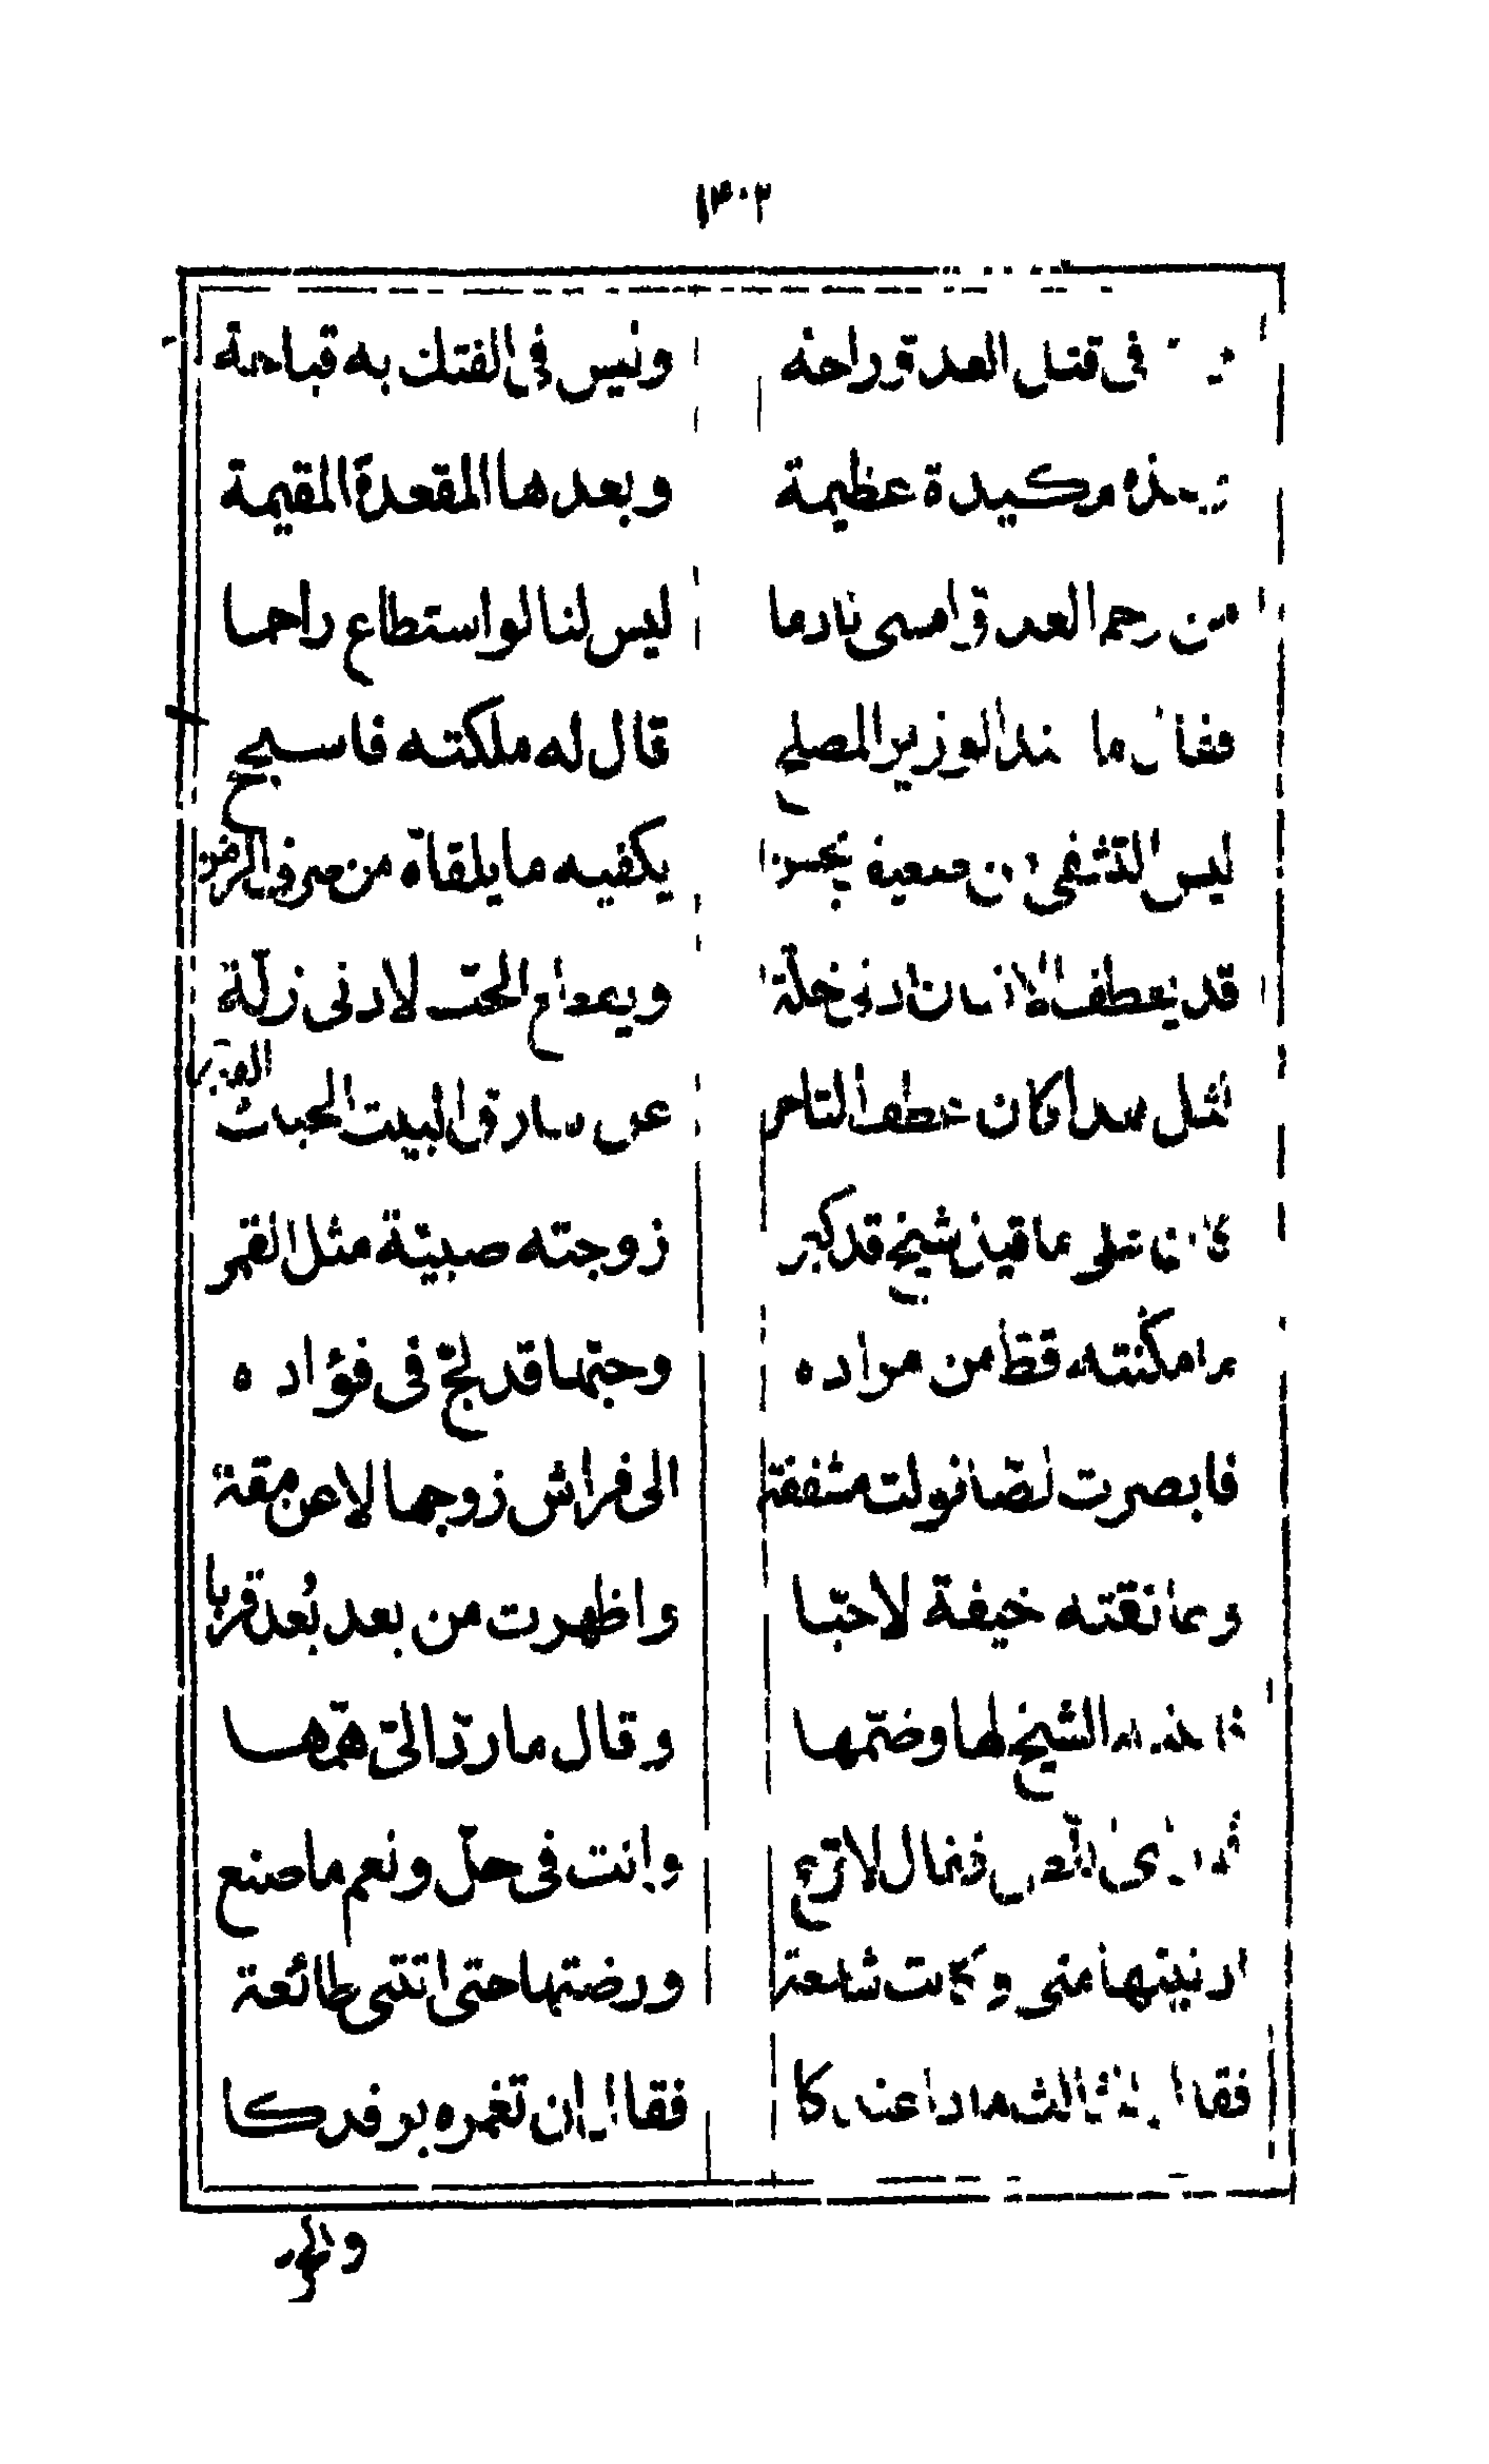 ١٣٠٢
في قتل العدو راحه وليس في الفتك به قباحة
مكيدة عظيمة وبعدها المقعدة المقيمة
من رحم العدو امسى نادما ليس لنا لو استطاع راحما
فقال ما الوزير المصلح قال له ملكته فاسجح
ليس التشفي من يحسن يكفيه ما يلقاه من صروف الزمن
قد يعطف الانسان ادنى خلة الحب لادنى زلة
كان التاجر سارق البيت
شيخ قد كبر زوجته صبية مثل القمر
ما مكنته قط من مراده وحبها قد لج في فؤاده
فابصرت لصا فولت مشفقة الى فراش زوجها لا عن مقة
وعانقته خيفة لا حبا واظهرت من بعد بُعد قربا
الشيخ لها وضمها وقال ما ردّ الىّ همها
فقال لا ترع وانت في حل ونعم ما صنع
ادنيتها مني وكانت شاسعة ورضتها حتى اتتني طائعة
فقال الثالث ماذا عندكا فقال ان تغمره برفدكا